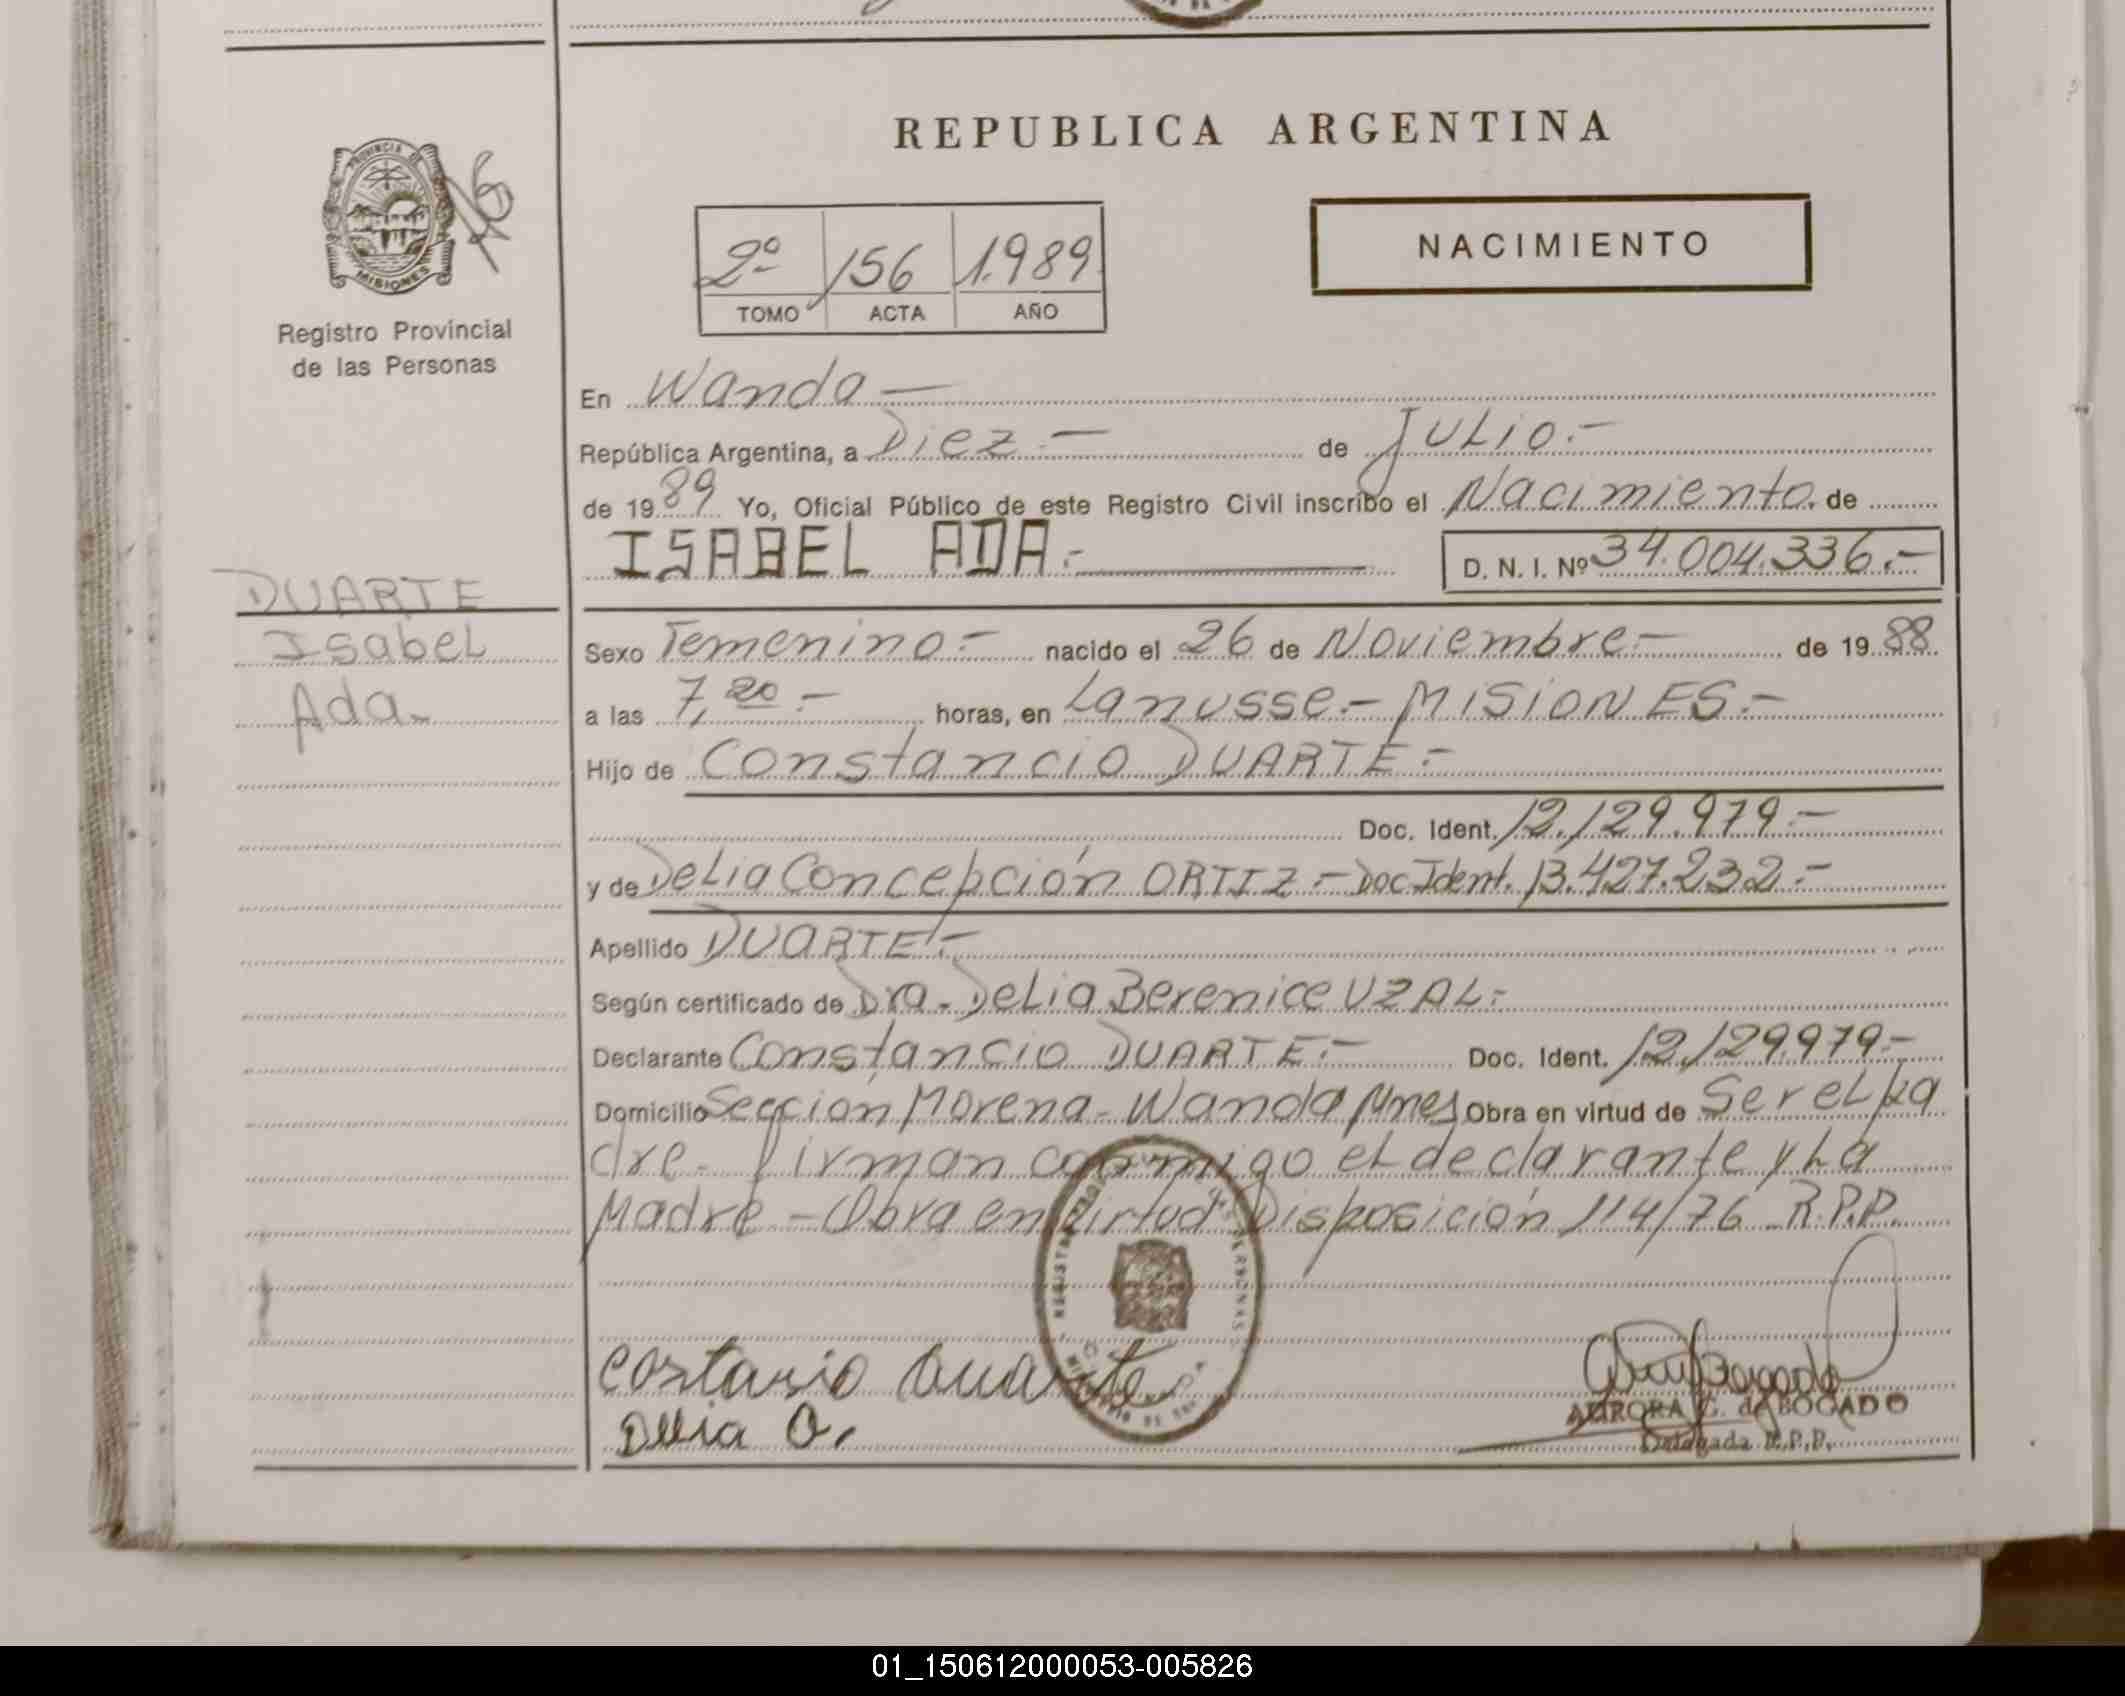 REPUBLICA ARGENTINA
PROVINCIA DE
MISIONES
Registro Provincial
de las Personas
2º 156 1.989
TOMO ACTA AÑO
NACIMIENTO
En Wanda —
República Argentina, a Diez.— de Julio.—
de 1989 Yo, Oficial Público de este Registro Civil inscribo el Nacimiento. de
ISABEL ADA.- D. N. I. Nº 34.004.336.—
DUARTE
Isabel
Ada.
Sexo Femenino.— nacido el 26 de Noviembre.— de 1988
a las 7,20.— horas, en Lanusse.— MISIONES.—
Hijo de Constancio DUARTE.—
Doc. Ident. 12.129.979.—
y de Delia Concepción ORTIZ.— Doc Ident. 13.427.232.—
Apellido DUARTE.—
Según certificado de Dra. Delia Berenice UZAL.-
Declarante Constancio DUARTE.— Doc. Ident. 12.129.979.-
Domicilio Seccion Morena - Wanda Mnes Obra en virtud de Ser el pa
dre. firman conmigo el declarante y La
Madre — Obra en virtud Disposición 114/76 R.P.P.
Costasio Duarte
Delia O.
AURORA G. de BOGADO
Delegada R.P.P.
01_150612000053-005826